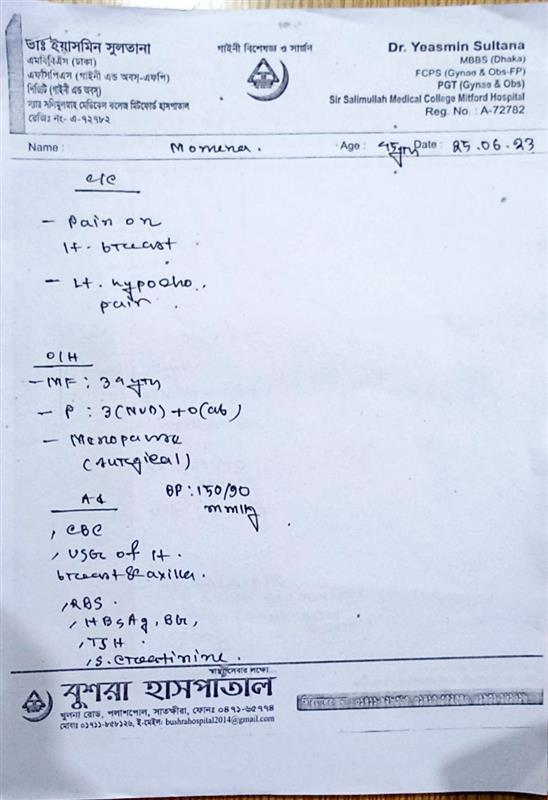 ডাঃ ইয়াসমিন সুলতানা
এমবিবিএস (ঢাকা)
এফসিপিএস (গাইনী এন্ড অবস্-এফপি)
পিজিটি (গাইনী এন্ড অবস্)
স্যার সলিমুল্লাহ মেডিকেল কলেজ মিটফোর্ড হাসপাতাল
রেজিঃ নং- এ-৭২৭৮২
গাইনী বিশেষজ্ঞ ও সার্জন
Dr. Yeasmin Sultana
MBBS (Dhaka)
FCPS (Gynae & Obs-FP)
PGT (Gynae & Obs)
Sir Salimullah Medical College Mitford Hospital
Reg. No. : A-72782
Name : Momena. Age : 45yrs Date : 25.06.23
C/C
- Pain on
lt. breast
- Lt. hypocho..
pain.
O/H
- MF : 34 yrs
- P : 3(NVD)+0(ab)
- Menopause
(surgical)
BP : 150/90
mmHg
, CBC
, USG of lt.
breast & axilla.
, RBS.
, HBsAg, BG,
, TSH.
, S. Creatinine.
বুশরা হাসপাতাল
খুলনা রোড, পলাশপোল, সাতক্ষীরা, ফোনঃ ০৪৭১-৬৫৭৭৪
মোবাঃ ০১৭১১-৮৫৮১২৬, ই-মেইল: bushrahospital2014@gmail.com